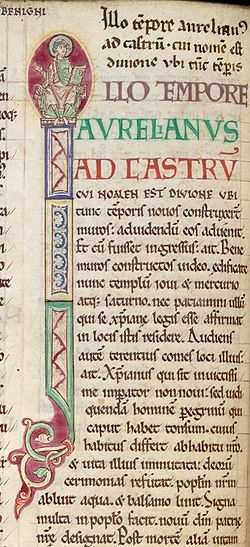 BENIGNI
Illo tēpore aurelianus
ad castrū cui nomē est
diuione ubi tūc tēpris
ILLO TEMPORE
AURELIANUS
AD CASTRŪ
CUI NOMEN EST DIVIONE UBI
tunc tēporis nouos construxerat
muros: aduidendū eos aduenit.
Et cū fuisset ingressus: ait. Bene
muros constructos uideo. edificate
nunc templum ioui & mercurio
atq; saturno. nec paciamini ullū
qui se xp̄iane legis esse affirmat
in locis istis residere. Audiens
autē terentius comes loci illius:
ait. Xp̄ianus qui sit inuictissi
me impator non noui: sed uidi
quendā hominē pegrinū qui
caput habet tonsum. cuius
habitus differt ab habitu nr̄o.
& uita illius immutata: deorū
cerimonias refutat. pop̄lm n̄rm
abluit aqua. & balsamo linit. Signa
multa in pop̄lo facit. nouū dm̄ patrie
nr̄e designat. Post mortē aliā uitam